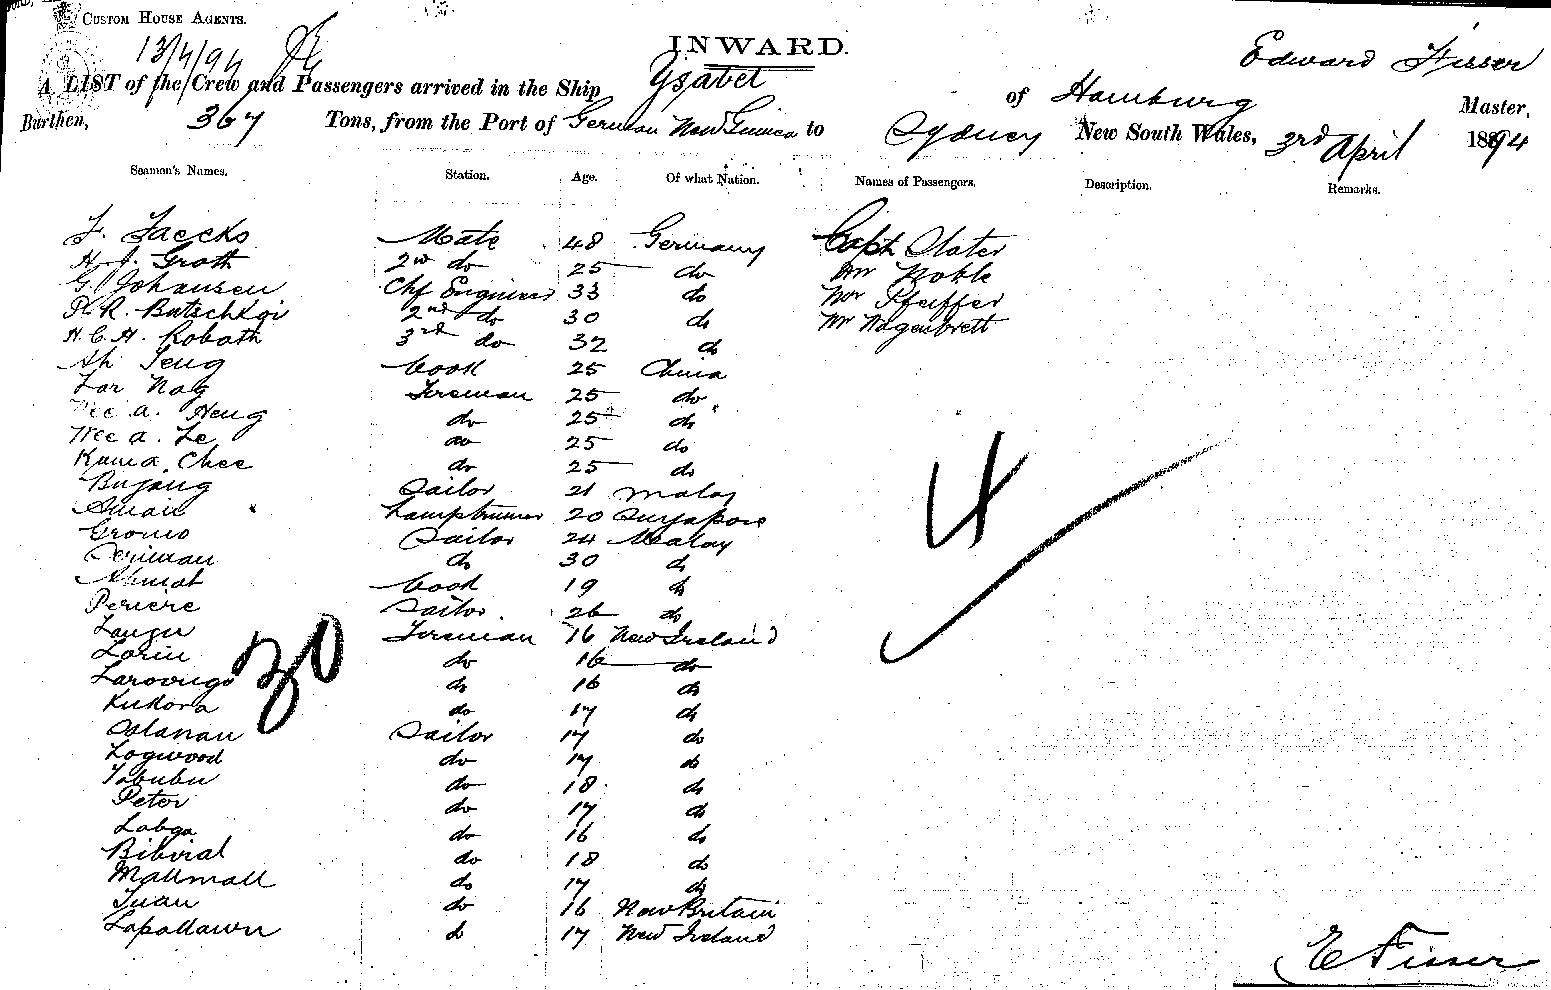 CUSTOM HOUSE AGENTS.
13/4/94
INWARD.
A LIST of the Crew and Passengers arrived in the Ship Ysabel of Hamburg Edward Fisser Master,
Burthen, 367 Tons, from the Port of German New Guinea to Sydney New South Wales, 3rd April 1894
Seamen's Names. Station. Age. Of what Nation. Names of Passengers. Description. Remarks.
F. Jaecks Mate 48 Germany Capt Slater
H. J. Groth 2nd do 25 do Mr Noble
G. Johansen Chf Engineer 33 do Mr Pfeiffer
R. R. Butschkgi 2nd do 30 do Mr Wagenbrett
H. C. H. Robath 3rd do 32 do
Ah Seng Cook 25 China
Lar Nag Fireman 25 do
Wee a. Heng do 25 do
Wee a. Le do 25 do
Kum a. Chee do 25 do
Bujang Sailor 21 Malay
Amair Lamptrimmer 20 Singapore
Gromo Sailor 24 Malay
Seriman do 30 do
Ahmat Cook 19 do
Periere Sailor 26 do
Langu Fireman 16 New Ireland
Lorin do 16 do
Larovugo do 16 do
Kukora do 17 do
Oslanau Sailor 17 do
Logwood do 17 do
Tabubu do 18 do
Peter do 17 do
Labga do 16 do
Bibvial do 18 do
Mallmall do 17 do
Tuan do 16 New Britain
Lapallawn do 17 New Ireland
30
4
E Fisser